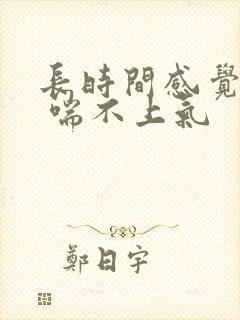 長時間感覺
喘不上氣
鄭日宇